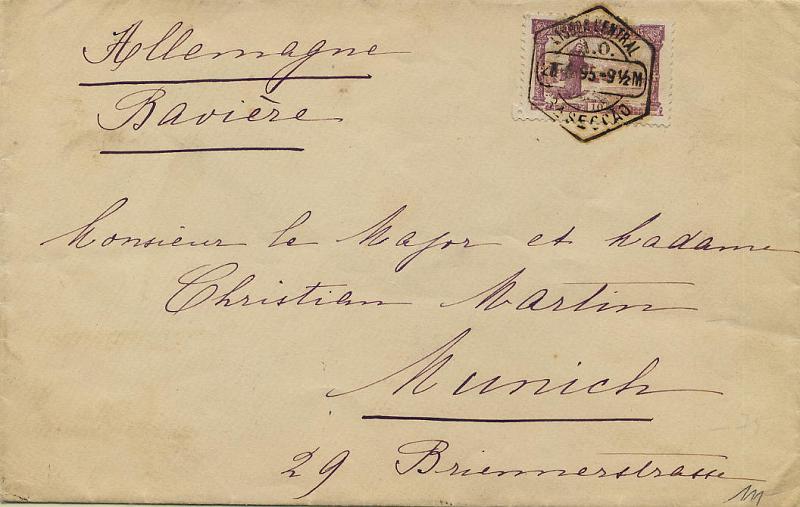 Allemagne
Bavière
LISBOA CENTRAL
95-9½M
SECÇÃO
Monsieur le Major et Madame
Christian Martin
Munich
29 Briennerstrasse